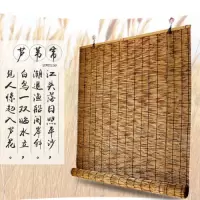 芦苇帘
江头落日照平沙
潮退渔船阁岸斜
白鸟一双临水立
见人惊起入芦花